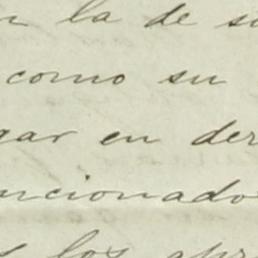 n la de su
como su
gar en der
ncionado
s los apr